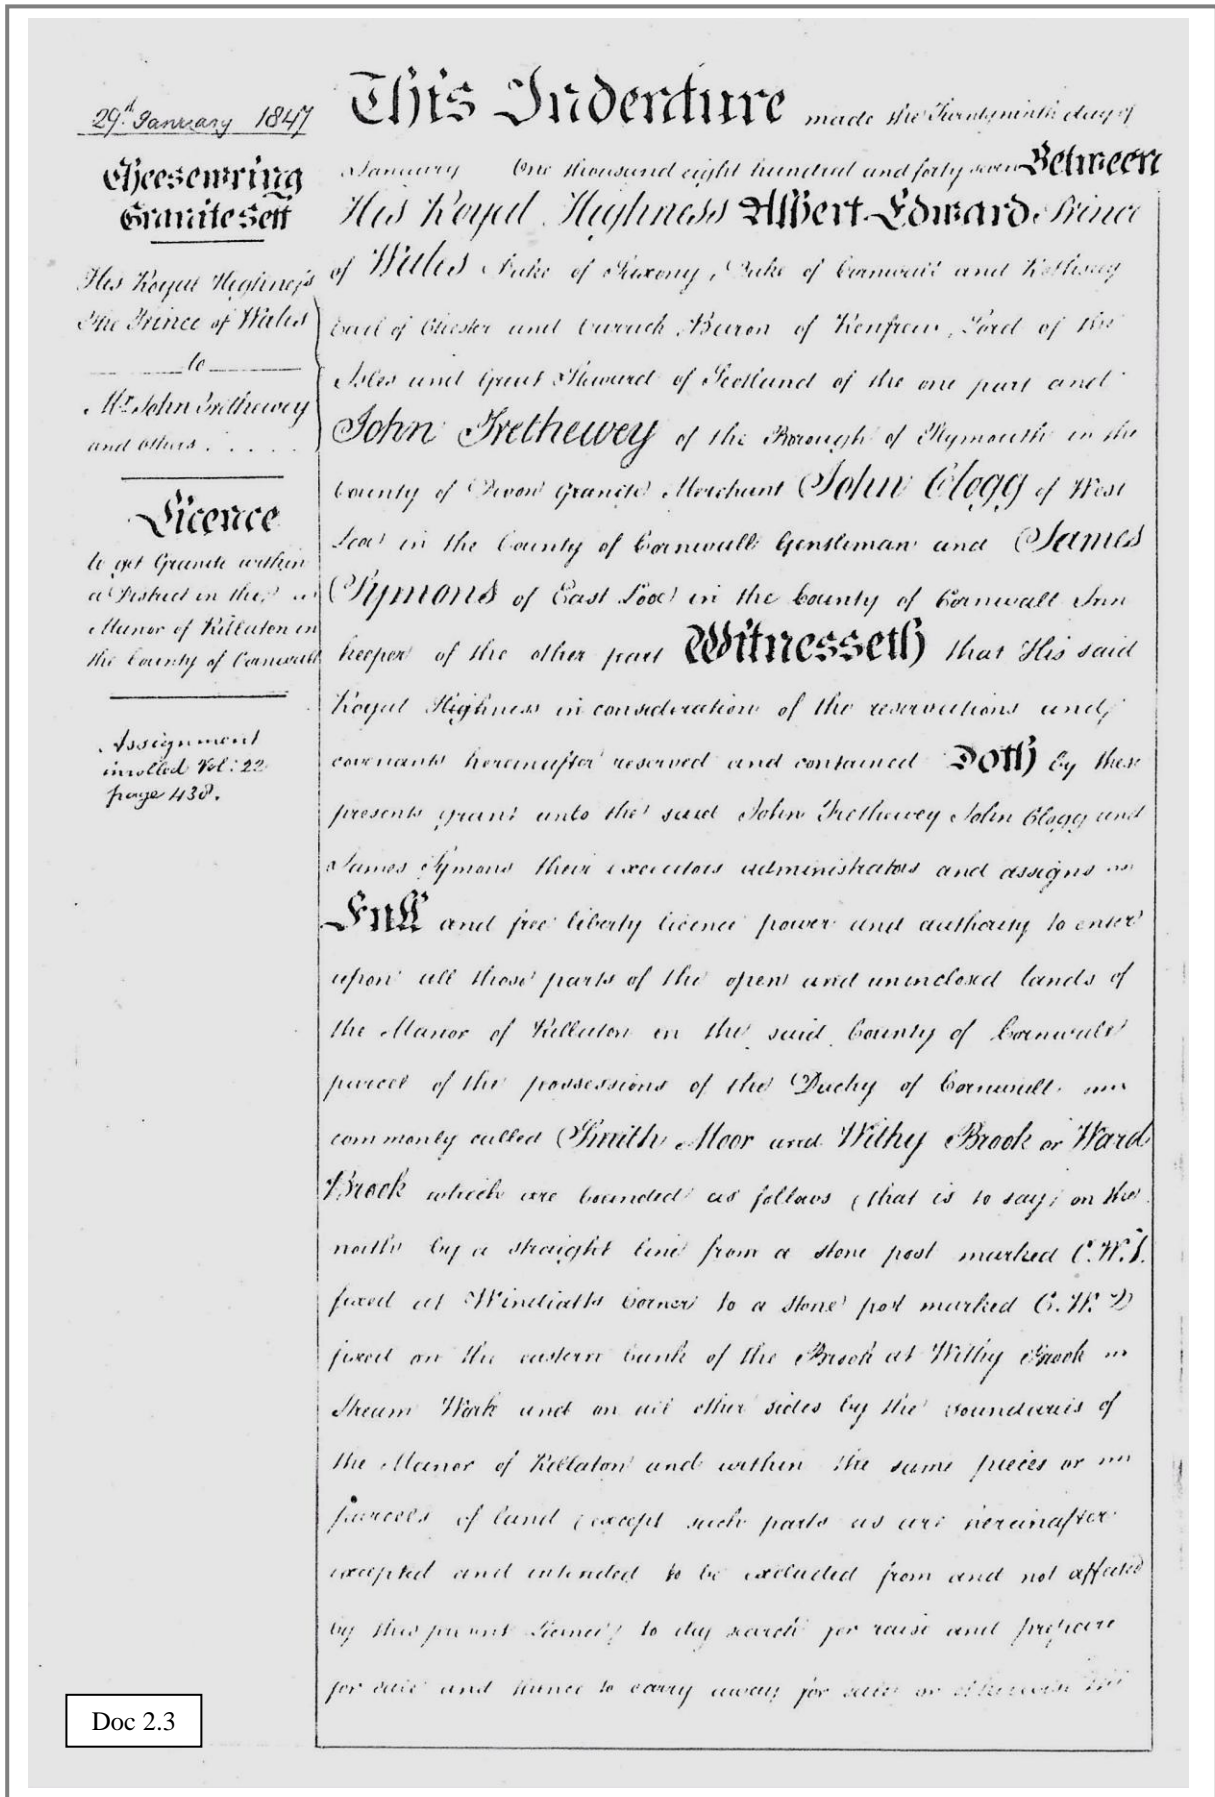 29th January 1847
Cheesewring
Granite Sett
His Royal Highness
The Prince of Wales
to
Mr. John Trethewey
and others . . . . .
Licence
to get Granite within
a District in the
Manor of Killaton in
the County of Cornwall
Assignment
inrolled Vol: 22
page 438.
This Indenture made the Twentyninth day of
January One thousand eight hundred and forty seven Between
His Royal Highness Albert Edward Prince
of Wales Duke of Saxony, Duke of Cornwall and Rothsay
Earl of Chester and Carrick Baron of Renfrew, Lord of the
Isles and Great Steward of Scotland of the one part and
John Trethewey of the Borough of Plymouth in the
County of Devon Granite Merchant John Clogg of West
Looe in the County of Cornwall Gentleman and James
Symons of East Looe in the County of Cornwall Inn
keeper of the other part Witnesseth that His said
Royal Highness in consideration of the reservations and
covenants hereinafter reserved and contained Doth by these
presents grant unto the said John Trethewey John Clogg and
James Symons their executors administrators and assigns
Full and free liberty licence power and authority to enter
upon all those parts of the open and uninclosed lands of
the Manor of Killaton in the said County of Cornwall
parcel of the possessions of the Duchy of Cornwall
commonly called Smith Moor and Withy Brook or Ward
Brook which are bounded as follows (that is to say) on the
north by a straight line from a stone post marked C.W.1.
fixed at Windiatts Corner to a stone post marked C.W.2
fixed on the eastern bank of the Brook at Withy Brook
Stream Work and on all other sides by the boundaries of
the Manor of Killaton and within the same pieces or
parcels of land (except such parts as are hereinafter
excepted and intended to be excluded from and not affected
by this present Licence) to dig search for raise and prepare
for sale and thence to carry away for sale or otherwise
Doc 2.3